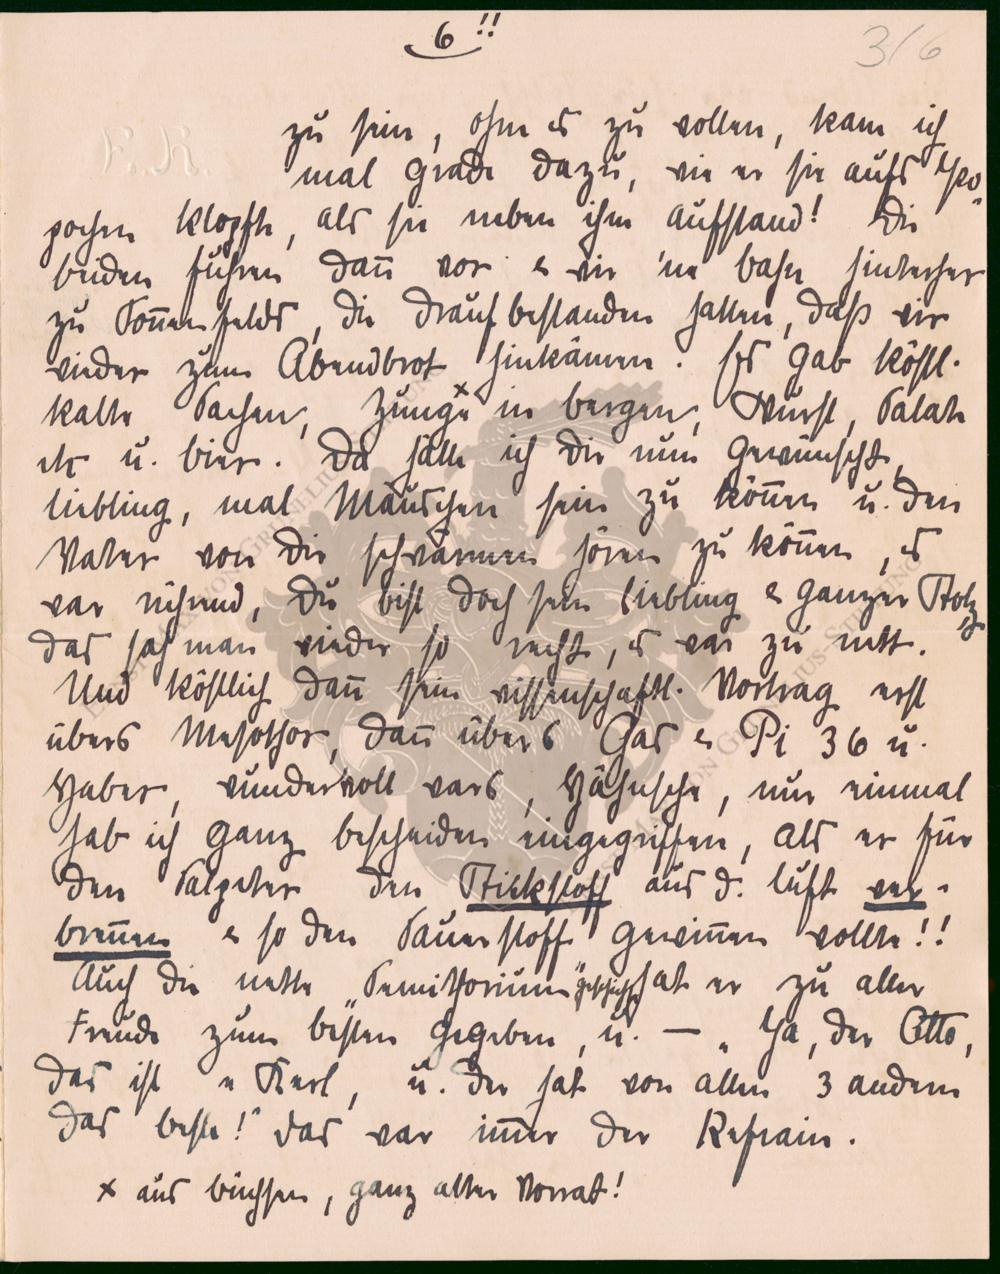 6!!
3/6
F.H.
zu sein, ohne es zu wollen, kam ich
mal grade dazu, wie er sie aufs Po-
pochen klopfte, als sie neben ihm aufstand! Die
beiden fuhren dan̄ vor & wir 'ne bahn hinterher
zu Son̄enfelds, die drauf bestanden hatten, daß wir
wieder zum Abendbrot hinkämen. Es gab köstl.
kalte Sachen, Zunge x in bergen, Wurst, Salate
etc u. bier. Da hätte ich dir nun gewünscht,
liebling, mal Mäuschen sein zu kön̄en u. den
Vater von dir schwärmen hören zu kön̄en, es
war rührend, du bist doch sein liebling & ganzer Stolz,
das sah man wieder so recht, es war zu nett.
Und köstlich dan̄ sein wissenschaftl. Vortrag erst
übers Mesothor, dan̄ übers Gas & Pi 36 u.
Haber, wundervoll wars, Hähnchen, nur einmal
hab ich ganz bescheiden eingegriffen, als er für
den Salpeter den Stickstoff aus d. luft ver-
bren̄en & so den Sauerstoff gewin̄en wollte!!
Auch die nette „Semithorium"geschichte hat er zu aller
Freude zum besten gegeben, u. — „Ja, der Otto,
das ist 'n Kerl, u. der hat von allen 3 andern
das beste!" das war im̄er der Refrain.
x aus büchsen, ganz alter Vorrat!